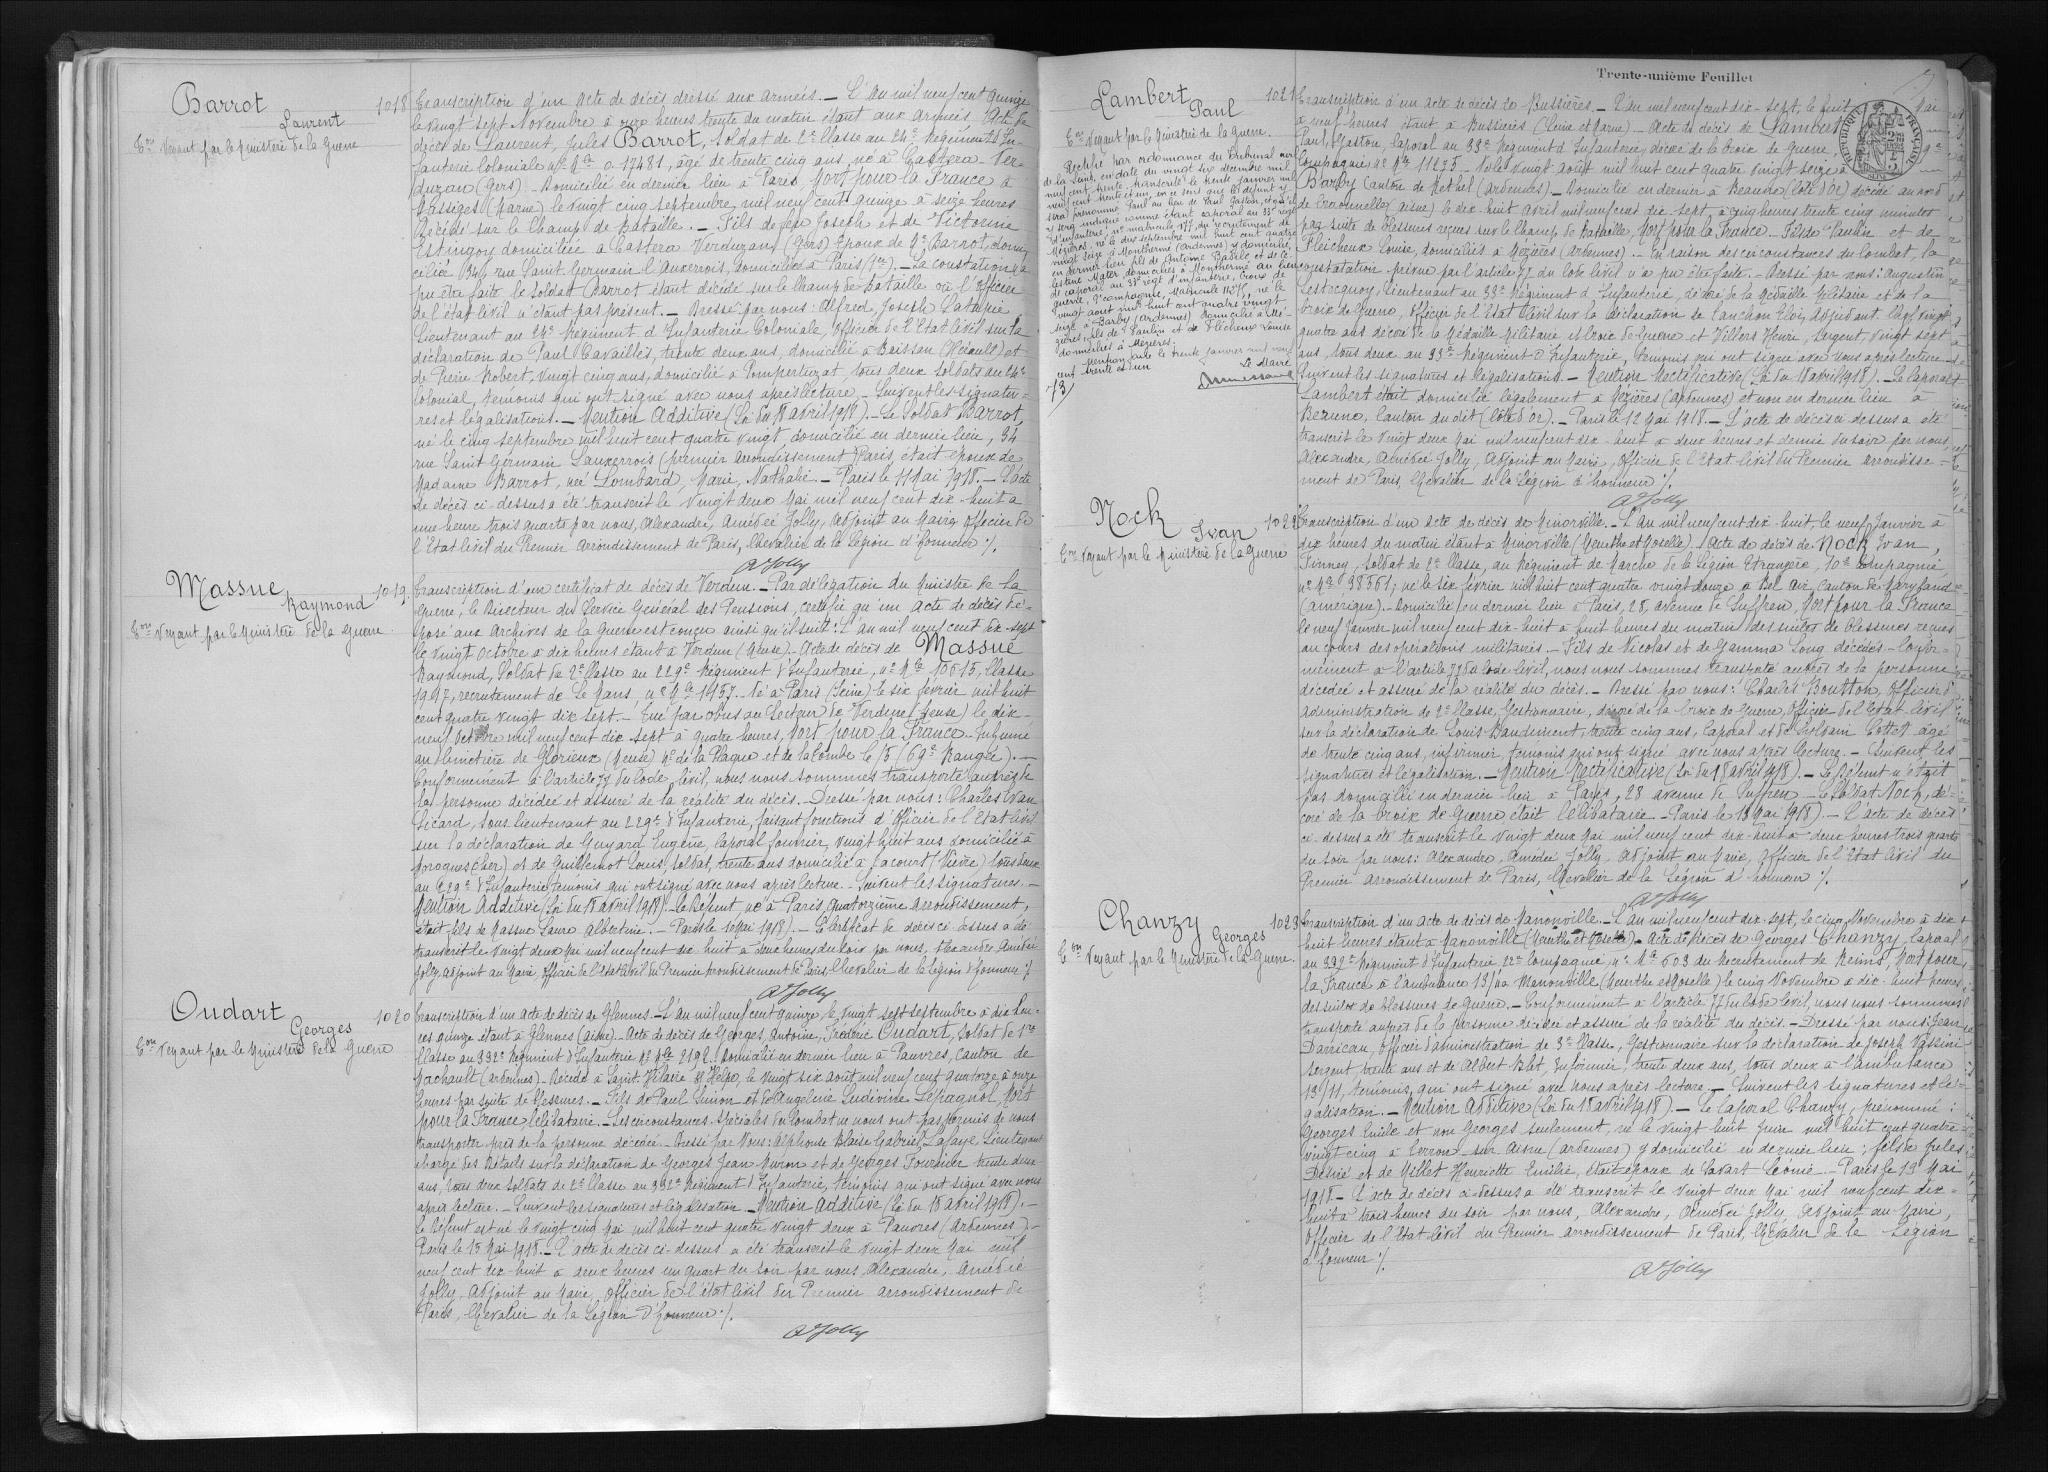 Barrot
Laurent
1018
Eon Venant par le Ministère de la Guerre
Transcription d'un acte de décès dressé aux armées. — L'An mil neuf cent quinze
le vingt sept Novembre à onze heures trente du matin étant aux armées Acte de
décès de Laurent, Jules Barrot, Soldat de 2e Classe au 24e Régiment d'In-
fanterie Coloniale no Mle 0.17481, âgé de trente cinq ans, né à Castera-Ver-
duzan (Gers) Domicilié en dernier lieu à Paris, Mort pour la France à
Massiges (Marne) le vingt cinq septembre mil neuf cent quinze à seize heures
Décédé sur le Champ de Bataille. — Fils de feu Joseph et de Victorine
Estingoy domiciliée à Castera Verduzan (Gers) Epoux de Me Barrot, domi-
ciliée 34, rue Saint Germain l'Auxerrois, domiciliée à Paris (1er). — La constation n'a
pu être faite le Soldat Barrot étant décédé sur le Champ de Bataille où l'Officier
de l'état Civil n'étant pas présent. — Dressé par nous: Alfred, Joseph Latapie
Lieutenant au 24e Régiment d'Infanterie Coloniale, Officier de l'Etat Civil sur la
déclaration de Paul Cavaillès, trente deux ans, domicilié à Baissan (Hérault) et
de Pierre Robert, vingt cinq ans, domicilié à Pompertuzat tous deux soldats au 24e
Colonial, témoins qui ont signé avec nous après lecture. — Suivent les signatu-
res et légalisations. — Mention Additive (Loi du 18 avril 1918). — Le Soldat Barrot,
né le cinq septembre mil huit cent quatre vingt domicilié en dernier lieu, 34
rue Saint Germain Lauxerrois (premier arrondissement) Paris, était époux de
Madame Barrot, née Lombard, Marie, Nathalie. — Paris le 11 Mai 1918. — L'acte
de décès ci-dessus a été transcrit le Vingt deux Mai mil neuf cent dix-huit à
une heure trois quarts par nous, Alexandre, Amédée Jolly, Adjoint au Maire, Officier de
l'Etat Civil du Premier Arrondissement de Paris, Chevalier de la Légion d'honneur ./.
A Jolly
Massue
Raymond
1019
Eon Venant par le Ministère de la Guerre
Transcription d'un certificat de décès de Verdun. — Par délégation du Ministre de la
Guerre; le Directeur du Service Général des Pensions, certifie qu'un acte de décès dé-
posé aux Archives de la Guerre est conçu ainsi qu'il suit: L'an mil neuf cent dix-sept
le vingt Octobre à dix heures étant à Verdun (Meuse). — Acte de décès de Massue
Raymond, Soldat de 2e Classe au 229e Régiment d'Infanterie, no Mle 10615, Classe
1917, recrutement de Le Mans, no Mle 1457. Né à Paris (Seine) le six février mil huit
cent quatre vingt dix sept. — Tué par obus au Secteur de Verdun (Meuse) le dix-
neuf Octobre mil neuf cent dix sept à quatre heures, Mort pour la France. Inhumé
au Cimetière de Glorieux (Meuse) No de la Plaque et de la tombe le 15 (69e Rangée). —
Conformément à l'article 77 du Code Civil, nous nous sommes transporté auprès de
la personne décédée et assuré de la réalité du décès. — Dressé par nous: Charles Ivan
Sicard, Sous Lieutenant au 229e d'Infanterie, faisant fonctions d'Officier de l'Etat Civil
sur la déclaration de Guyard Eugène, Caporal fourrier, vingt huit ans domicilié à
Morogues (Cher) et de Guillemot Louis, soldat, trente ans domicilié à (Nièvre) tous deux
au 229e d'Infanterie témoins qui ont signé avec nous après lecture. — Suivent les signatures. —
Mention Additive (Loi du 18 avril 1918). — Le Défunt né à Paris, quatorzième arrondissement,
était fils de Massue Laure Albertine. — Paris le Mai 1918). — Le Certificat de décès ci-dessus a été
transcrit le Vingt deux Mai mil neuf cent dix-huit à deux heures du soir par nous, Alexandre Amédée
Jolly, adjoint au Maire, Officier de l'Etat Civil du Premier Arrondissement de Paris, Chevalier de la Légion d'honneur ./.
A Jolly
Oudart
Georges
1020
Eon Venant par le Ministère de la Guerre
Transcription d'un Acte de décès de Glennes. — L'An mil neuf cent quinze, le vingt sept septembre à dix heu-
res quinze étant à Glennes (Aisne). — Acte de décès de Georges, Antoine, Frédéric Oudart, Soldat de 1re
Classe au 332e Régiment d'Infanterie No Mle 2192. Domicilié en dernier lieu à Pauvres, canton de
Machault (Ardennes). — Décédé à Saint-Hilaire St Hélpo, le vingt six août mil neuf cent quatorze à onze
heures par suite de blessures. — Fils de Paul Simon et de Angeline Ludivine Lespagnol, Mort
pour la France, Célibataire. — Les circonstances spéciales du Combat ne nous ont pas permis de nous
transporter près de la personne décédée. — Dressé par Nous: Alphonse Blaise Gabriel Lafaye, Lieutenant
chargé des Détails sur la déclaration de Georges Jean Miron et de Georges Fournier trente deux
ans, tous deux Soldats de 2e Classe au 332e Régiment d'Infanterie, témoins qui ont signé avec nous
après lecture. — Suivent les signatures et légalisation. — Mention Additive (Loi du 18 avril 1918). —
Le Défunt est né le vingt cinq Mai mil huit cent quatre vingt deux à Pauvres (Ardennes). —
Paris le 15 Mai 1918. — L'acte de décès ci-dessus a été transcrit le Vingt deux Mai mil
neuf cent dix-huit à deux heures un quart du soir par nous Alexandre, Amédée
Jolly, adjoint au Maire, Officier de l'état Civil du Premier arrondissement de
Paris, Chevalier de la Légion d'honneur ./.
A Jolly
Trente-unième Feuillet
Lambert
Paul
1021
Eon Venant par le Ministère de la Guerre.
Rectifié par ordonnance du Tribunal civil
de la Seine, en date du vingt six décembre mil
neuf cent trente, transcrite le trente janvier mil
neuf cent trente et un, en ce sens que le défunt y
sera prénommé Paul au lieu de Paul Gaston, et qu'il
y sera indiqué comme étant caporal au 33e régt
d'infanterie, no matricule 177 du recrutement de
Mézières, né le dix septembre mil huit cent quatre
vingt seize à Monthermé (Ardennes) y domicilié
en dernier lieu, fils de Antoine Basile et de Cé-
lestine Mater domiciliés à Monthermé au lieu
de caporal au 33e régt d'infanterie, Croix de
guerre, 9e compagnie, Matricule 11235, né le
vingt août mil huit cent quatre vingt
seize à Barby (Ardennes) domicilié à Mé-
zières, fils de Paulin et de Flicheux Louise
domiciliés à Mézières.
Mention faite le trente janvier mil neuf
cent trente et un
Le Maire
73/
Transcription d'un acte de décès de Bussières. — L'an mil neuf cent dix-sept, le huit Mai
à neuf heures étant à Bussières (Seine et Marne). — Acte de décès de Lambert
Paul, Gaston, Caporal au 33e Régiment d'Infanterie, décoré de la Croix de Guerre, 9e
Compagnie No Mle 11235. — Né le Vingt août mil huit cent quatre vingt seize à
Barby Canton de Rethel (Ardennes) — Domicilié en dernier à Beaune (Côte d'Or) décédé au nord
de Craonnelle (Aisne) le dix-huit avril mil neuf cent dix-sept, à cinq heures trente cinq minutes
par suite de blessures reçues sur le Champ de Bataille, Mort pour la France. Fils de Paulin et de
Fleicheux Louise, domiciliés à Mézières (Ardennes). — En raison des circonstances du Combat, la
constatation prévue par l'article 77 du Code Civil n'a pu être faite. — Dressé par nous: Augustin
Lestocquoy, Lieutenant au 33e Régiment d'Infanterie, décoré de la Médaille Militaire et de la
Croix de Guerre, Officier de l'Etat Civil sur la déclaration de Eloi, Adjudant Chef, vingt
quatre ans décoré de la Médaille Militaire et Croix de Guerre et Villers Henri, Sergent, vingt sept
ans, tous deux au 33e Régiment d'Infanterie, témoins qui ont signé avec nous après lecture. —
Suivent les signatures et légalisations. — Mention Rectificative (Loi du 18 avril 1918). — Le Caporal
Lambert était domicilié légalement à Mézières (Ardennes) et non en dernier lieu à
Beaune, Canton du dit (Côte d'Or). — Paris le 12 Mai 1918. — L'acte de décès ci dessus a été
transcrit le Vingt deux Mai mil neuf cent dix-huit à deux heures et demie du soir par nous,
Alexandre, Amédée Jolly, Adjoint au Maire, Officier de l'Etat Civil du Premier arrondisse-
ment de Paris, Chevalier de la Légion d'honneur ./.
A Jolly
Nock
Ivan
1022
Eon Venant par le Ministère de la Guerre
Transcription d'un Acte de décès de Minorville. — L'An mil neuf cent dix-huit, le neuf Janvier à
dix heures du matin étant à Minorville (Meurthe et Moselle) Acte de décès de Nock Ivan,
Finney, Soldat de 2e Classe, au Régiment de Marche de la Légion Etrangère, 10e Compagnie,
No Mle 38561; né le six février mil huit cent quatre vingt douze à Bel Air, Canton de Maryland
(Amérique). — Domicilié en dernier lieu à Paris, 28, avenue de Suffren, Mort pour la France
le neuf Janvier mil neuf cent dix-huit à huit heures du matin des suites de blessures reçues
au cours des opérations militaires. — Fils de Nicolas et de Gamma Long décédés. — Confor-
mément à l'article 77 du Code Civil, nous nous sommes transporté auprès de la personne
décédée et assuré de la réalité du décès. — Dressé par nous: Charles Boutton, Officier d'
Administration de 2e Classe, Gestionnaire, décoré de la Croix de Guerre, Officier de l'Etat Civil
sur la déclaration de Louis Dansement, trente cinq ans, Caporal et de Sylvain Cottet âgé
de trente cinq ans, infirmier, témoins qui ont signé avec nous après lecture. — Suivent les
signatures et légalisation. — Mention Rectificative (Loi du 18 avril 1918). — Le Défunt n'était
pas domicilié en dernier lieu à Paris, 28 avenue de Suffren — Le Soldat Nock, dé-
coré de la Croix de Guerre était Célibataire. — Paris le 13 Mai 1918). — L'acte de décès
ci-dessus a été transcrit le Vingt deux Mai mil neuf cent dix-huit à deux heures trois quarts
du soir par nous: Alexandre, Amédée Jolly, Adjoint au Maire, Officier de l'Etat Civil du
Premier arrondissement de Paris, Chevalier de la Légion d'honneur ./.
A Jolly
Chanzy
Georges
1023
Eon Venant par le Ministère de la Guerre.
Transcription d'un acte de décès de Manonville. — L'An mil neuf cent dix-sept, le cinq Novembre à dix-
huit heures étant à Manonville (Meurthe et Moselle). — Acte de décès de Georges Chanzy, Caporal
au 332e Régiment d'Infanterie 22e Compagnie No Mle 603 du Recrutement de Reims, Mort pour
la France à l'ambulance 13/11 Manonville (Meurthe et Moselle) le cinq Novembre à dix-huit heures
des suites de blessures de Guerre. — Conformément à l'article 77 du Code Civil, nous nous sommes
transporté auprès de la personne décédée et assuré de la réalité du décès. — Dressé par nous: Jean
Darricau, Officier d'administration de 3e Classe, Gestionnaire sur la déclaration de Joseph Vassini
Sergent trente ans et de Albert Blot, Infirmier, trente deux ans, tous deux à l'ambulance
13/11, témoins, qui ont signé avec nous après lecture. — Suivent les signatures et lé-
galisation. — Mention Additive (Loi du 18 avril 1918). — Le Caporal Chanzy, prénommé:
Georges Emile et non Georges seulement, né le vingt huit Juin mil huit cent quatre
vingt cinq à Terron-sur-Aisne (Ardennes) y domicilié en dernier lieu, fils de Jules
Désiré et de Millet Henriette Emélie, était époux de Cavart Léonie. — Paris le 13 Mai
1918. — L'acte de décès ci-dessus a été transcrit le Vingt deux Mai mil neuf cent dix-
huit à trois heures du soir par nous, Alexandre, Amédée Jolly, Adjoint au Maire,
Officier de l'Etat Civil du Premier arrondissement de Paris, Chevalier de la Légion
d'honneur ./.
A Jolly